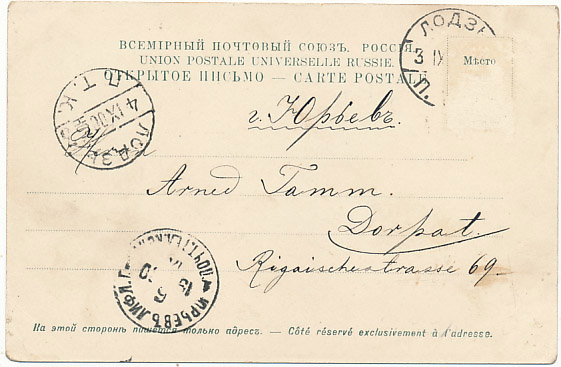 ВСЕМІРНЫЙ ПОЧТОВЫЙ СОЮЗЪ. РОССІЯ.
UNION POSTALE UNIVERSELLE RUSSIE.
ОТКРЫТОЕ ПИСЬМО — CARTE POSTALE
Мѣсто
ЛОДЗЬ
3 IX
П. Т. К.
4 IX
ЛОДЗЬ
г. Юрьевъ.
Arned Tamm.
Dorpat.
Rigaischestrasse 69.
ЮРЬЕВЪ ЛИФЛ. Г.
На этой сторонѣ пишется только адресъ. — Côté réservé exclusivement à l'adresse.